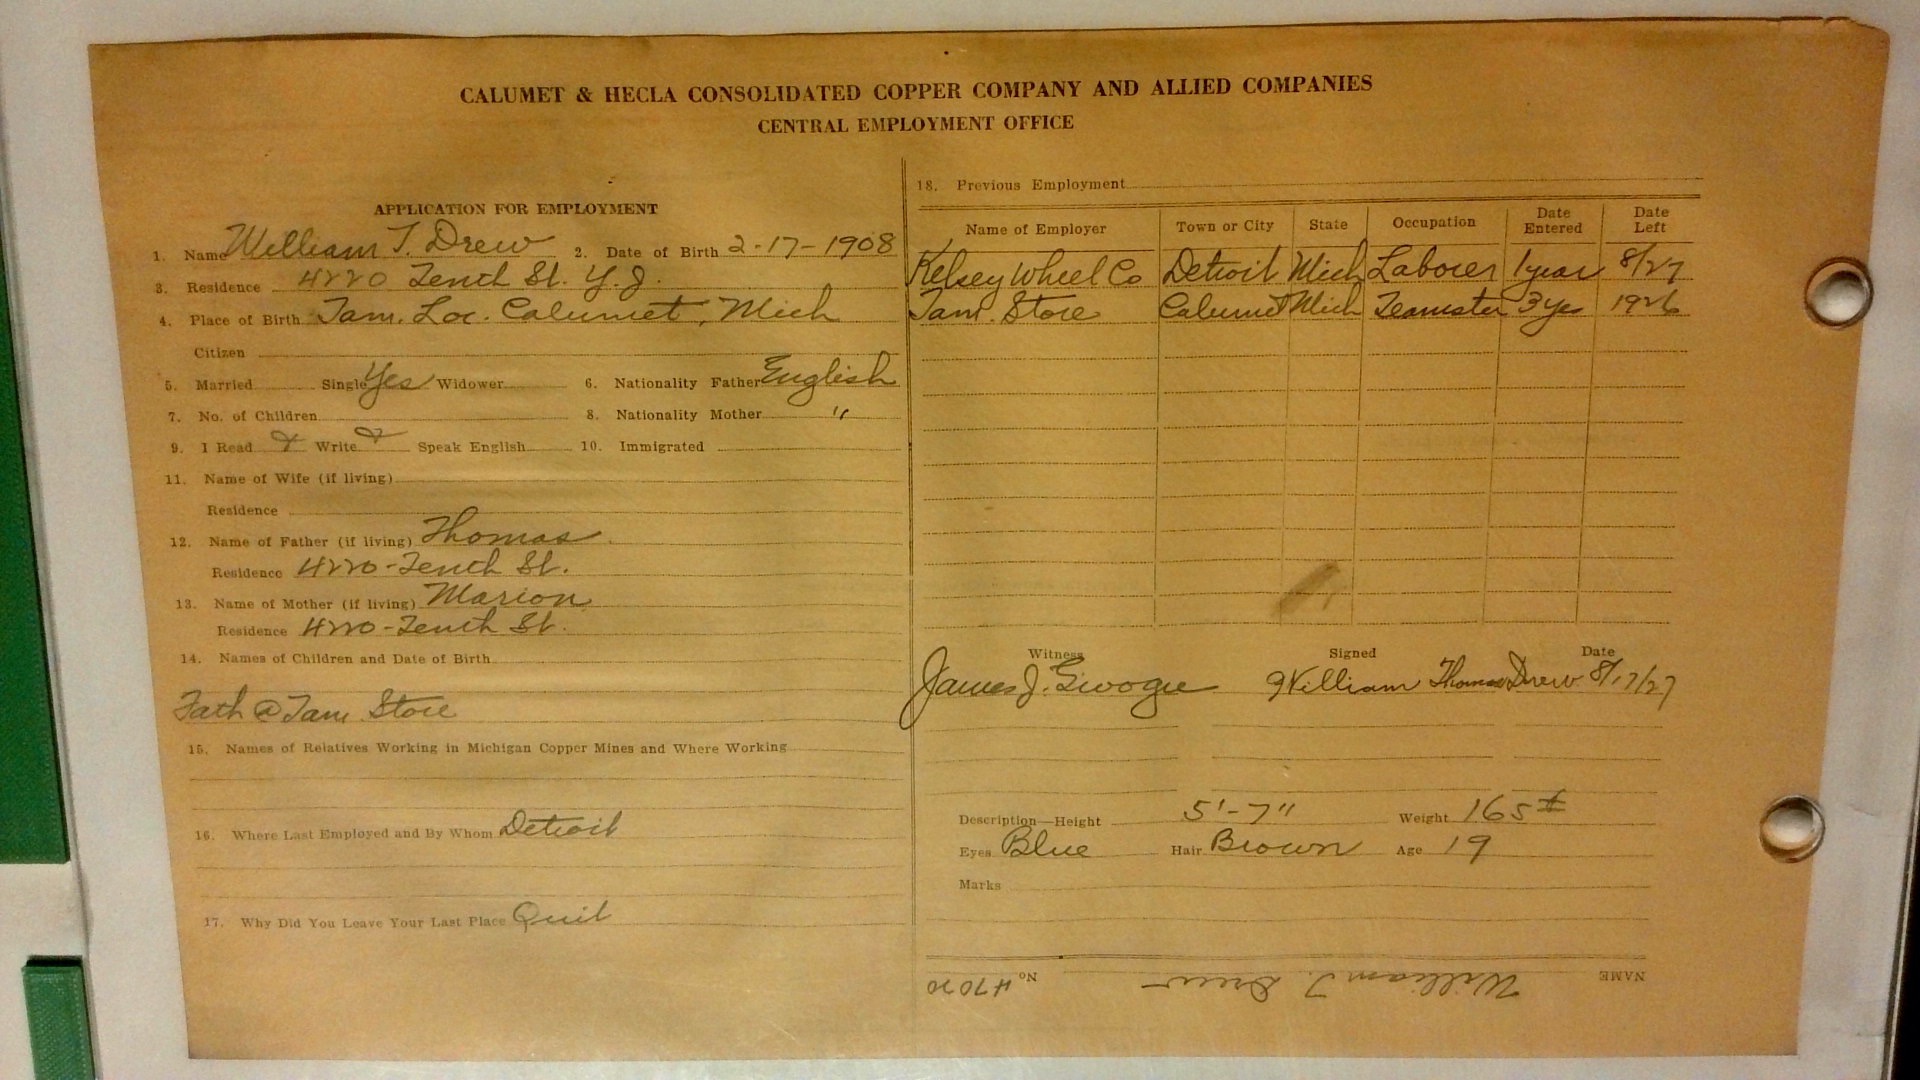 CALUMET & HECLA CONSOLIDATED COPPER COMPANY AND ALLIED COMPANIES
CENTRAL EMPLOYMENT OFFICE
APPLICATION FOR EMPLOYMENT
1. Name William T. Drew 2. Date of Birth 2-17-1908
3. Residence 4220 Tenth St. Y.J.
4. Place of Birth Tam. Loc. Calumet, Mich
Citizen
5. Married Single Yes Widower 6. Nationality Father English
7. No. of Children 8. Nationality Mother "
9. I Read Write Speak English 10. Immigrated
11. Name of Wife (if living)
Residence
12. Name of Father (if living) Thomas
Residence 4220-Tenth St.
13. Name of Mother (if living) Marion
Residence 4220-Tenth St.
14. Names of Children and Date of Birth
Fath @ Tam Store
15. Names of Relatives Working in Michigan Copper Mines and Where Working
16. Where Last Employed and By Whom Detroit
17. Why Did You Leave Your Last Place Quit
18. Previous Employment
Name of Employer Town or City State Occupation Date Entered Date Left
Kelsey Wheel Co Detroit Mich Laborer 1 year 8/27
Tam. Store Calumet Mich Teamster 3 yes 1926
Witness Signed Date
James J. William Thomas Drew 8/17/27
Description—Height 5'-7" Weight 165#
Eyes Blue Hair Brown Age 19
Marks
NAME William T. Drew No. 47070